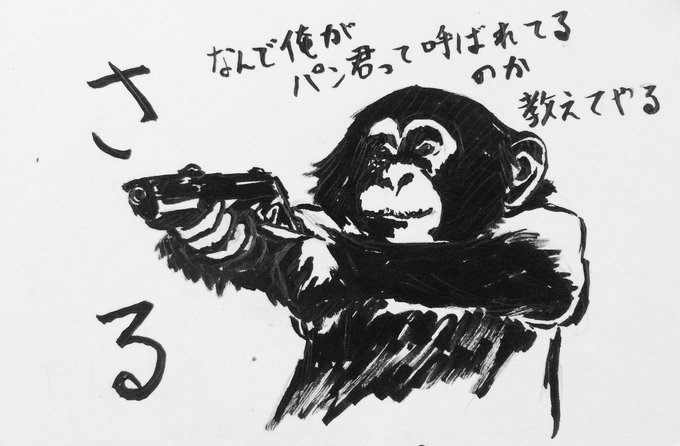 なんで俺が
パン君って呼ばれてる
のか
教えてやる
さる